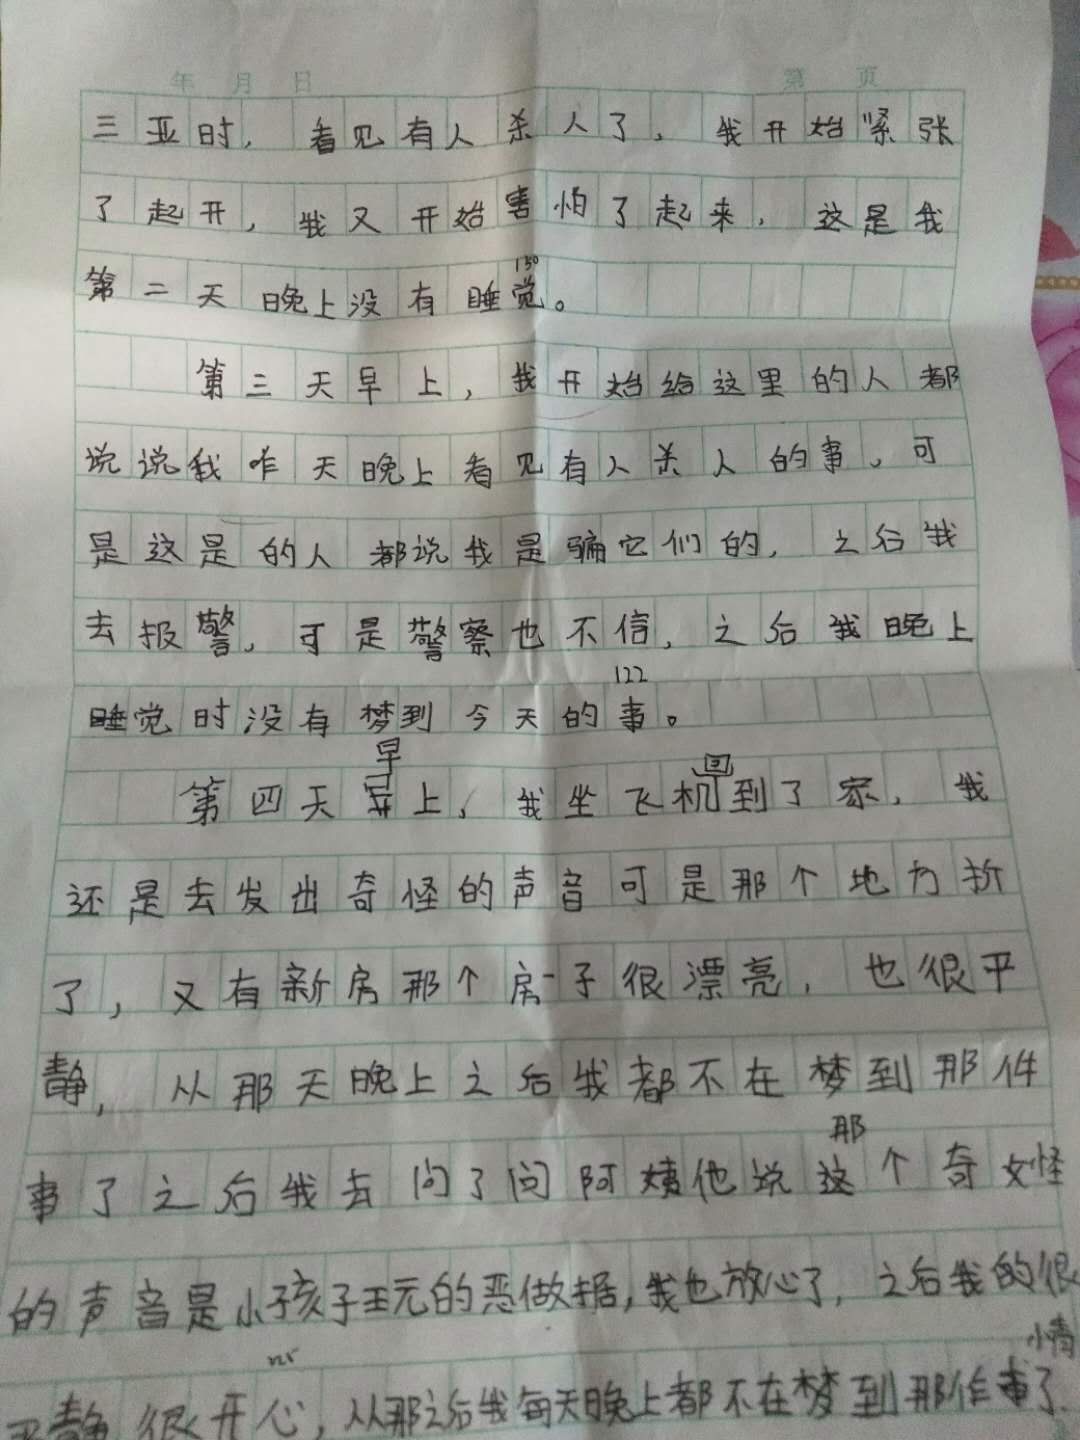 年 月 日 第 页
三亚时，看见有人杀人了，我开始紧张
了起开，我又开始害怕了起来，这是我
130
第二天晚上没有睡觉。
第三天早上，我开始给这里的人都
说说我咋天晚上看见有人杀人的事。可
是这是的人都说我是骗它们的，之后我
去报警，可是警察也不信，之后我晚上
122
睡觉时没有梦到今天的事。
早 回
第四天上，我坐飞机到了家，我
还是去发出奇怪的声音可是那个地方折
了，又有新房那个房子很漂亮，也很平
静，从那天晚上之后我都不在梦到那件
那
事了之后我去问了问阿姨他说这个奇怪
的声音是小孩子王元的恶做据，我也放心了，之后我的很
情
平静很开心，从那之后我每天晚上都不在梦到那件事了.